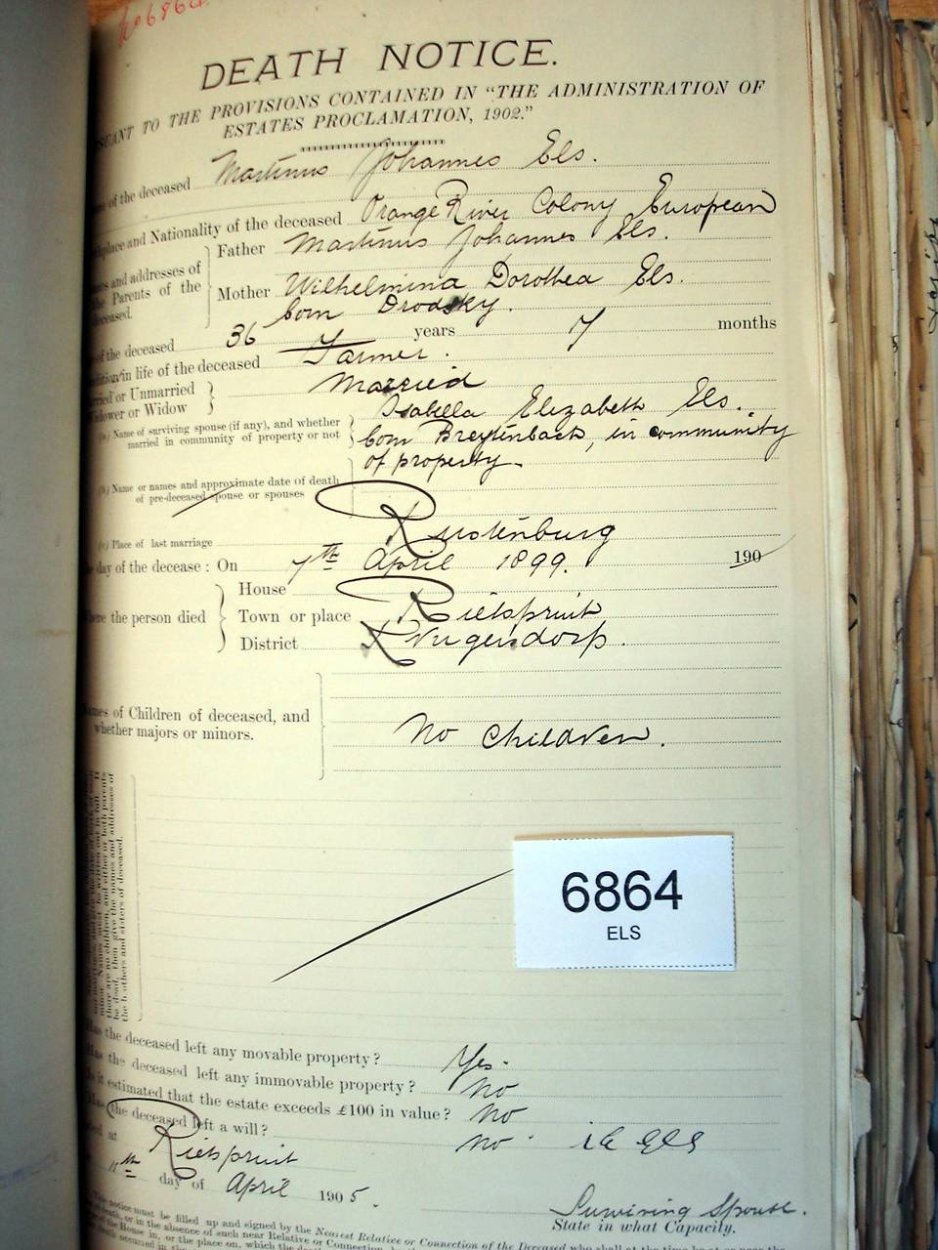 DEATH NOTICE.
TO THE PROVISIONS CONTAINED IN "THE ADMINISTRATION OF
ESTATES PROCLAMATION, 1902."
of the deceased Martinus Johannes Els.
and Nationality of the deceased Orange River Colony European
and addresses of Parents of the Father Martinus Johannes Els.
Mother Wilhelmina Dorothea Els.
born Drodsky.
of the deceased 36 years 7 months
in life of the deceased Farmer.
or Unmarried Married
or Widow
Name of surviving spouse (if any), and whether married in community of property or not Isabella Elizabeth Els.
born Breytenbach, in community
of property.
Name or names and approximate date of death
of pre-deceased spouse or spouses
Place of last marriage Rustenburg
day of the decease: On 7th April 1899. 190
the person died House
Town or place Rietspruit
District Krugersdorp.
of Children of deceased, and
whether majors or minors.
No children.
6864
ELS
the deceased left any movable property? Yes.
the deceased left any immovable property? No
estimated that the estate exceeds £100 in value? No
the deceased left a will? No
at Rietspruit
day of April 1905.
Surviving Spouse.
State in what Capacity.
notice must be filled up and signed by the Nearest Relative or Connection of the Deceased who shall at the time